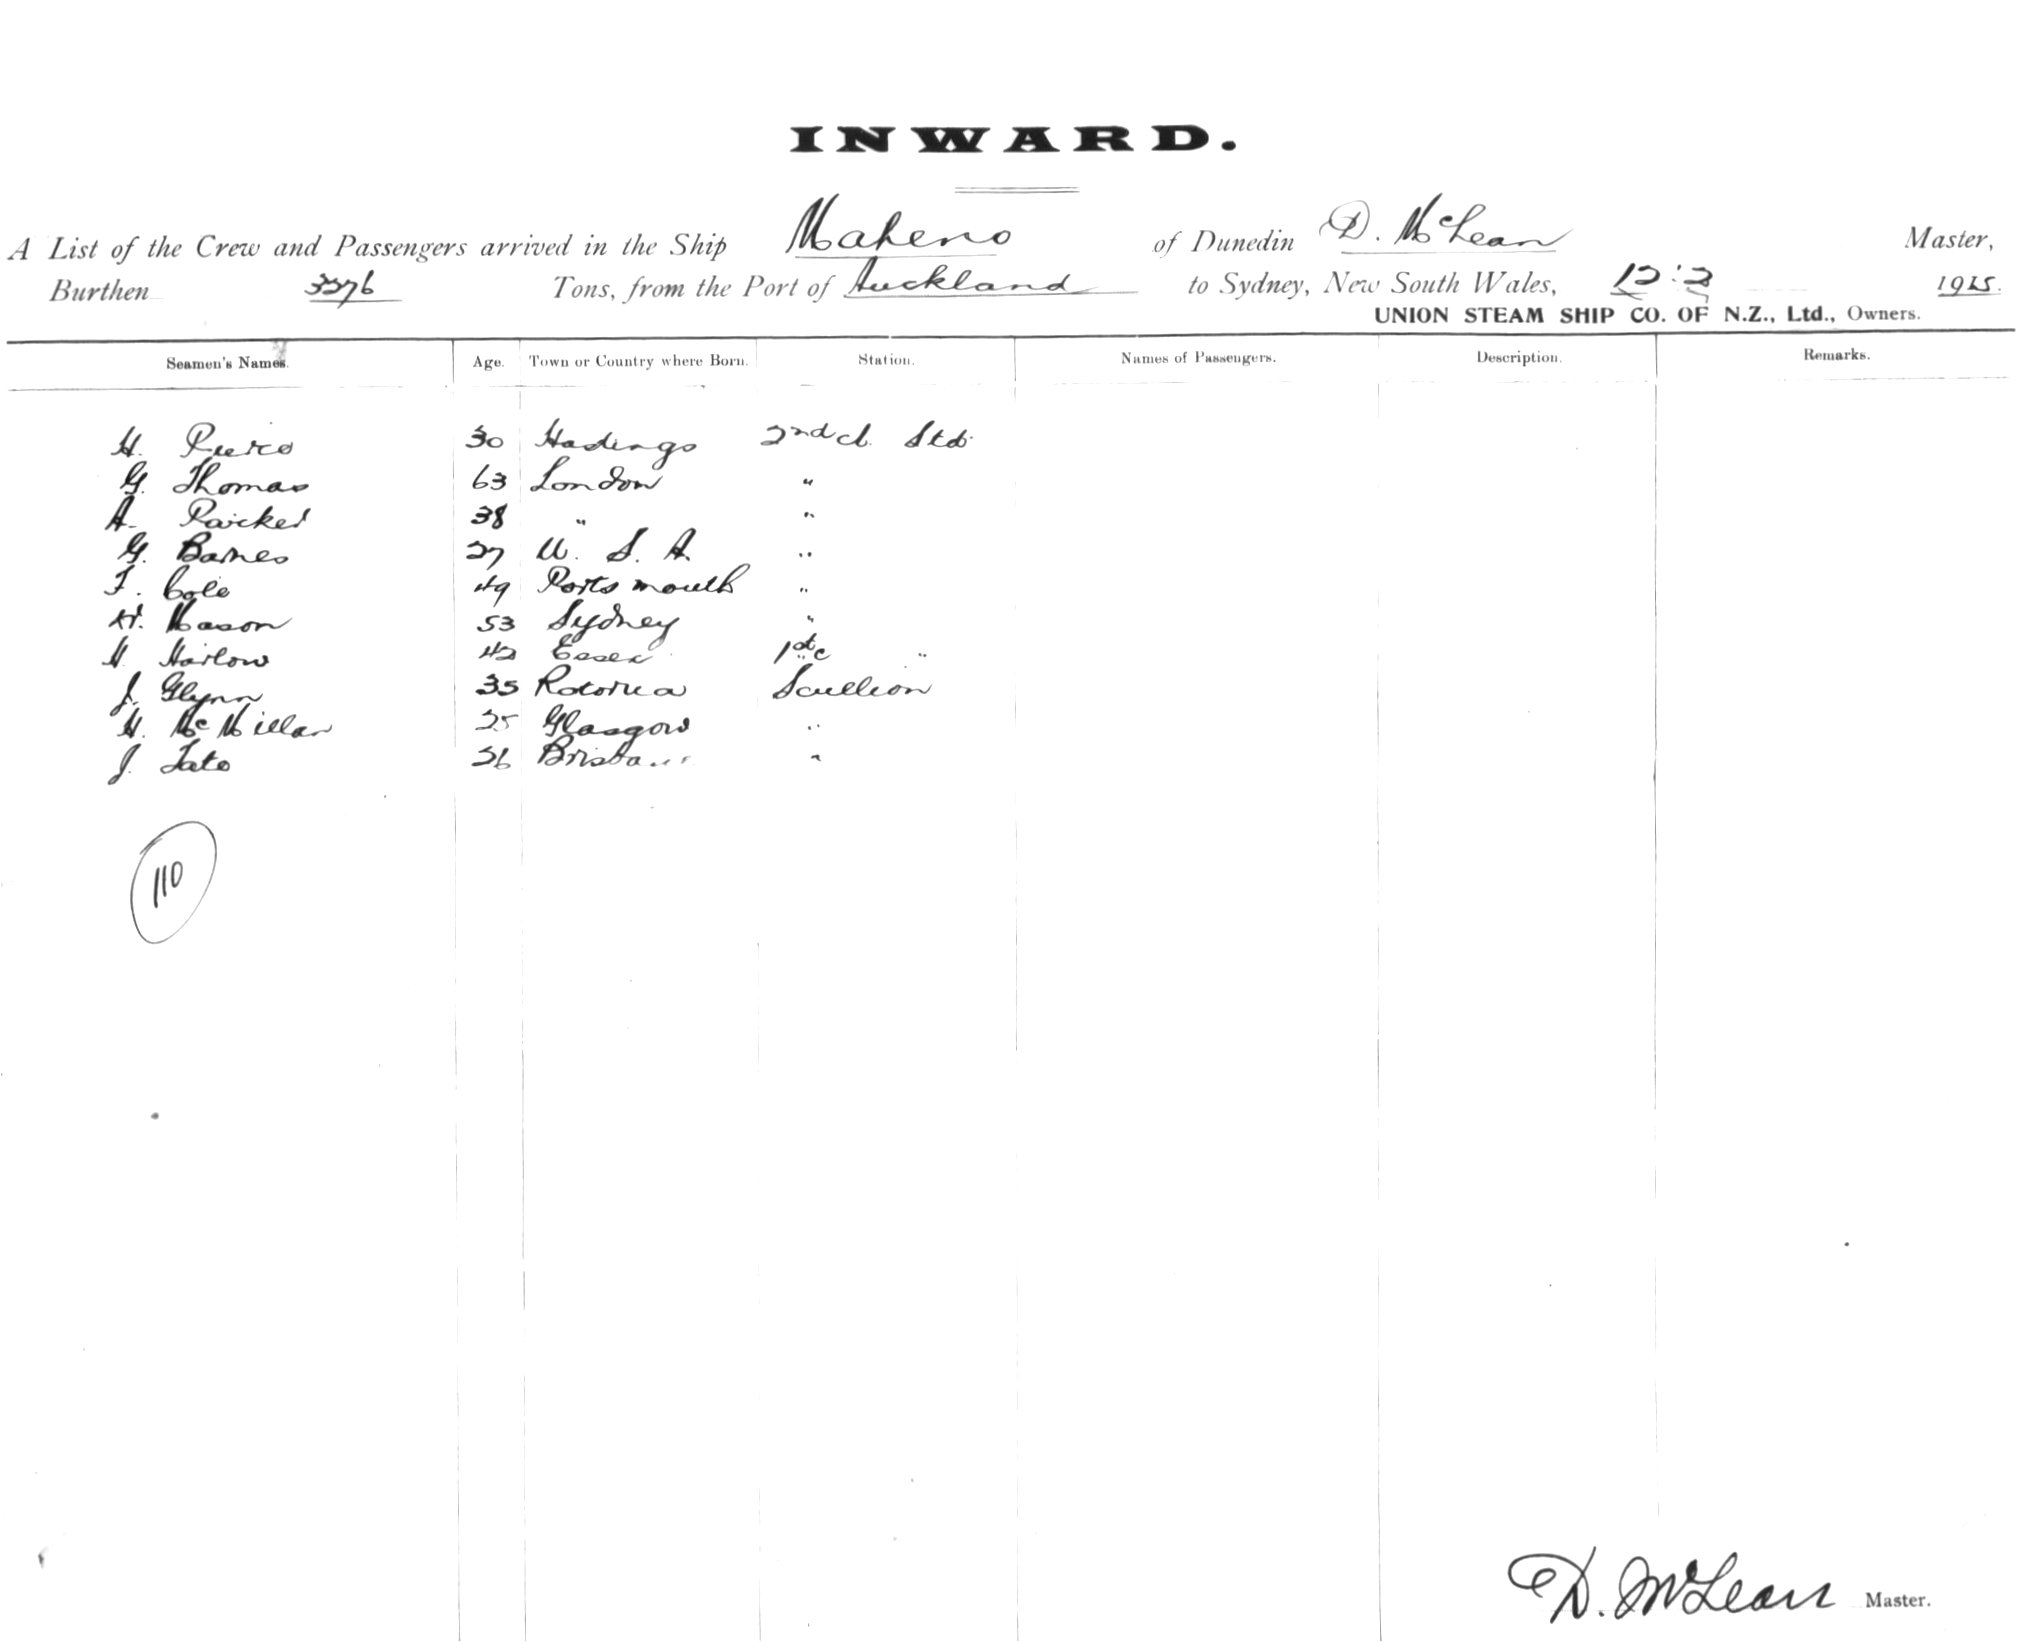 INWARD.
A List of the Crew and Passengers arrived in the Ship Maheno of Dunedin D. McLean Master,
Burthen Tons, from the Port of Auckland to Sydney, New South Wales, 1925.
UNION STEAM SHIP CO. OF N.Z., Ltd., Owners.
Seamen's Names. Age. Town or Country where Born. Station. Names of Passengers. Description. Remarks.
H. 30 Hastings 2nd cl. Std
G. Thomas 63 London "
A. 38 " "
G. Barnes 27 U. S. A. "
F. Cole 49 Portsmouth "
H. Mason 53 Sydney "
H. Harlow 42 Essex 1st c "
J. Glynn 35 Rotorua Scullion
H. McMillan 25 Glasgow "
J. Tate 26 "
110
D. McLean Master.